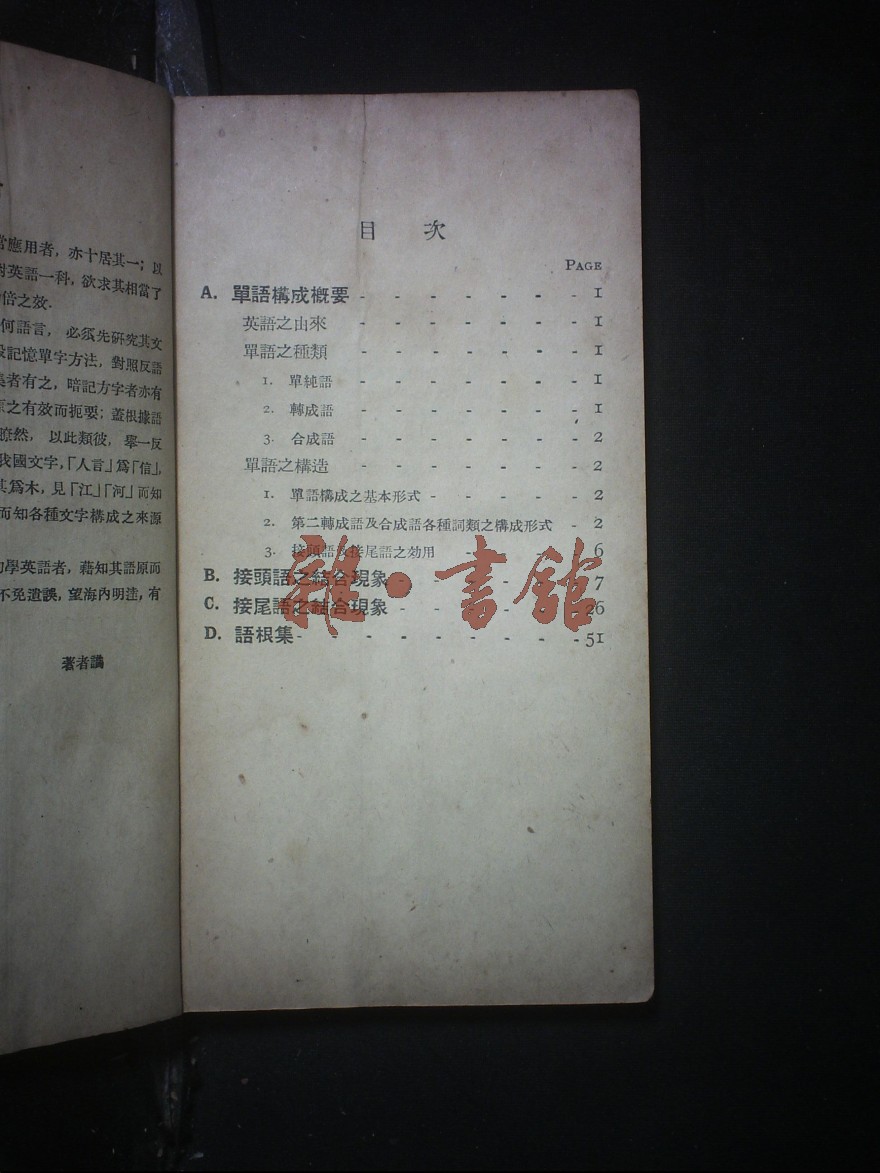 當應用者，亦十居其一；以
對英語一科，欲求其相當了
倍之效.
何語言， 必須先硏究其文
記憶單字方法，對照反語
集者有之，暗記方字者亦有
原之有效而扼要；蓋根據語
瞭然， 以此類彼，舉一反
我國文字，「人言」爲「信」，
其爲木，見「江」「河」而知
而知各種文字構成之來源
學英語者，藉知其語原而
不免遺誤，望海內明達，有
著者識
目 次
PAGE
A. 單語構成概要 - - - - - - - 1
英語之由來 - - - - - - - 1
單語之種類 - - - - - - - 1
1. 單純語 - - - - - - - 1
2. 轉成語 - - - - - - - 1
3. 合成語 - - - - - - - 2
單語之構造 - - - - - - - 2
1. 單語構成之基本形式 - - - - - 2
2. 第二轉成語及合成語各種詞類之構成形式 - 2
3. 接頭語及接尾語之効用 - - - - - 6
B. 接頭語之結合現象 - - - - - - 7
C. 接尾語之結合現象 - - - - - - 26
D. 語根集 - - - - - - - - 51
雜·書館